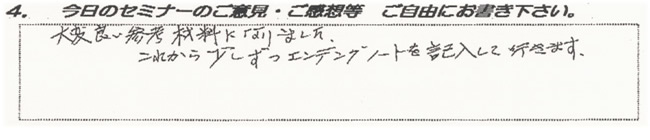 4. 今日のセミナーのご意見・ご感想等 ご自由にお書き下さい。
大変良い参考材料になりました。
これから少しずつエンディングノートを記入して行きます。